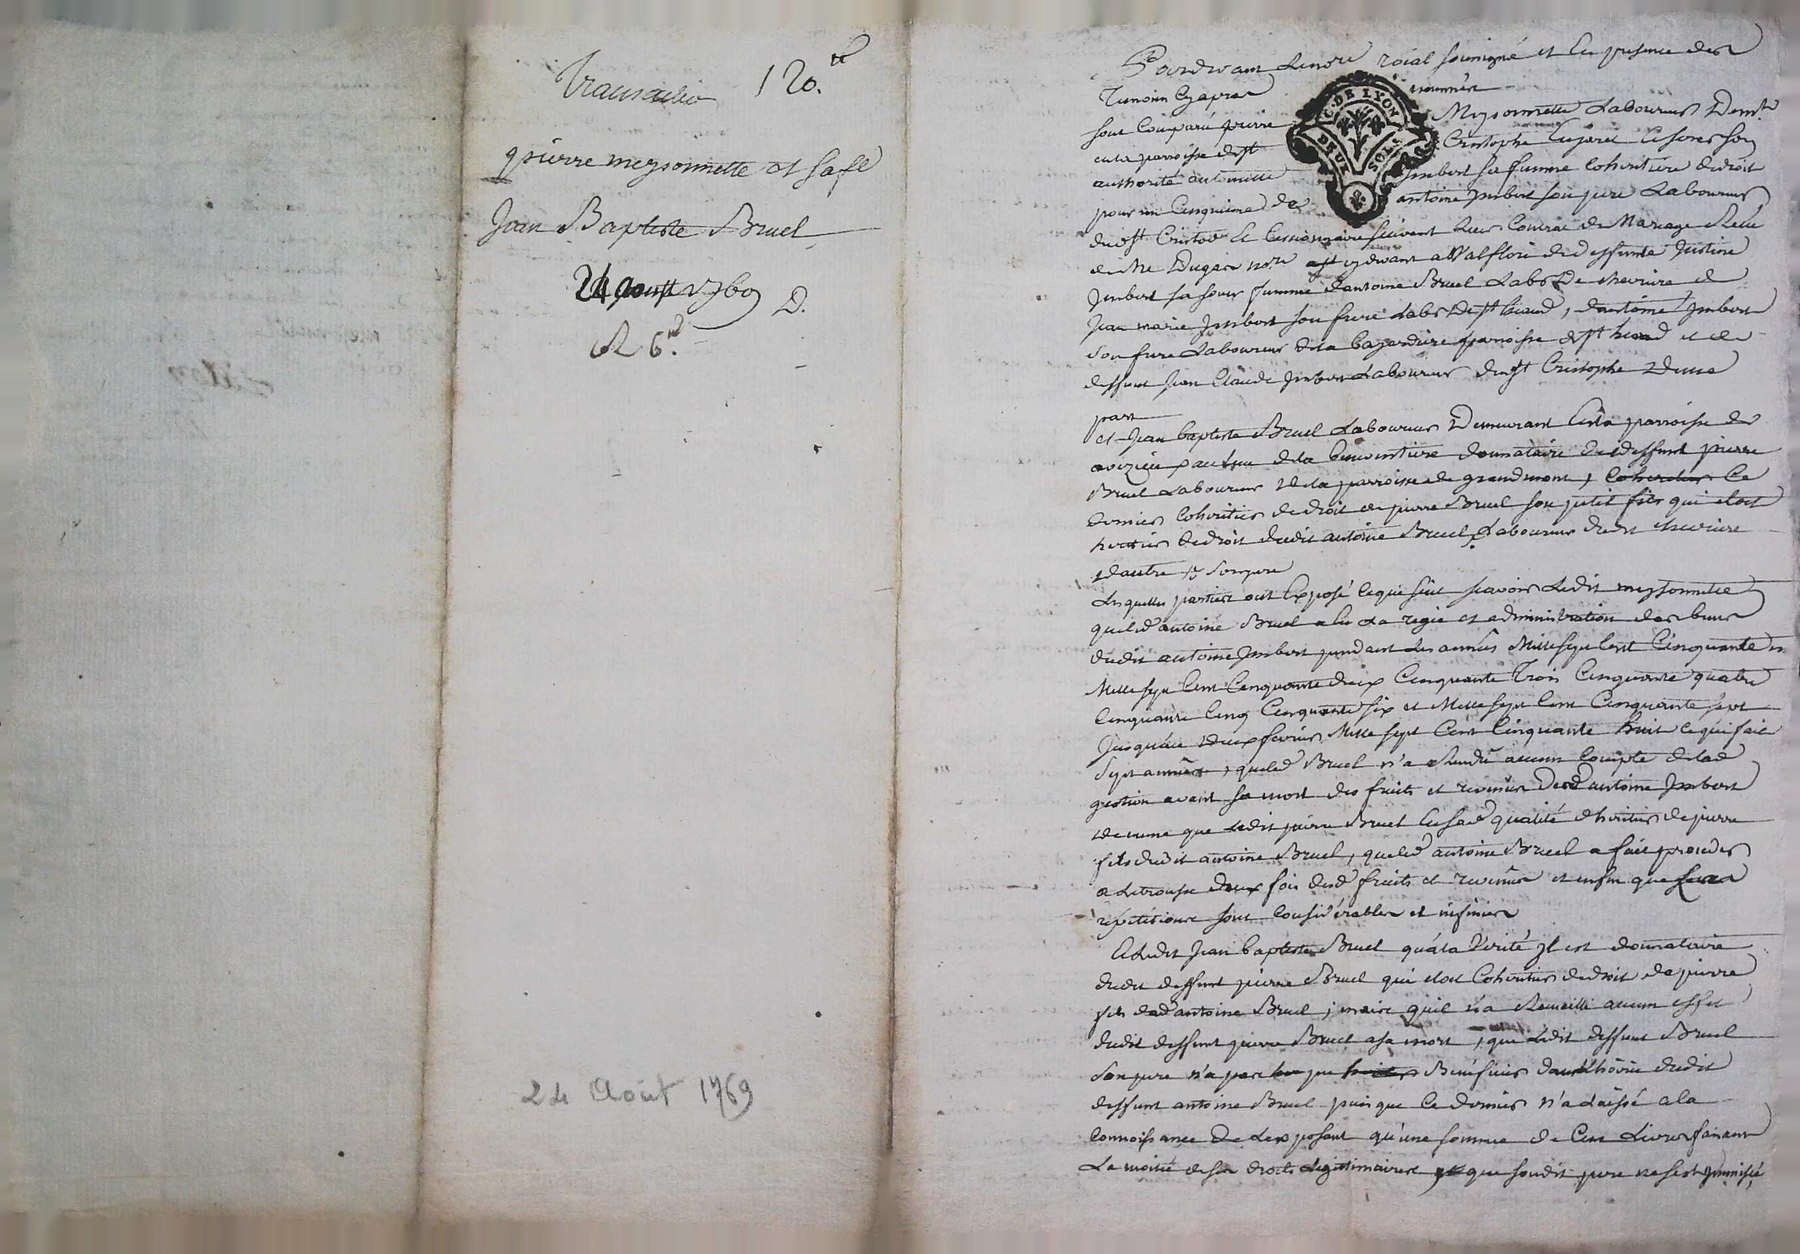 Transaction 120.tt
pierre meysonnette et sa fe
Jean Baptiste Bruel
24 aoust 1769
D.
R 6.d
24 Août 1769
Pardevant Le nore roial soussigné et En presence des
Temoins Cy apres nommés
G. DE LYON
DEUX SOLS
sont Comparu pierre Meysonnette Laboureur Demt
en la parroisse de st Cristophe
authorité Imbert sa femme Coheritiere de droit
pour un Cinquieme de antoine Imbert son pere Laboureur
dudt Cristo suivant Leur Contrat de Mariage Recu
de Me Dugas nore a Valfleuri de deffunte Justine
Imbert sa soeur femme dantoine Bruel Labr De chevriere et
Jean marie Imbert son frere Labr De st heand, dantoine Imbert
son frere Laboureur de la bajardiere parroisse de st heand et de
deffunt Jean Claude Imbert Laboureur de st Cristophe Dune
part
et Jean baptiste Bruel Laboureur Demeurant En la parroisse de
aveizieu au Lieu de la donnataire de deffunt pierre
Bruel Laboureur de la parroisse de grandmont, Ce
dernier Coheritier de droit de pierre Bruel son petit fils qui etoit
heritier de droit dudit antoine Bruel Laboureur dudt chevriere
dautre
Lesquelles parties ont Exposé Ce que suit scavoir Ledit meysonnette
que led antoine Bruel a Eu La regie et administration des biens
dudit antoine Imbert pendant Les années Mille sept Cent Cinquante un
Mille sept Cent Cinquante deux Cinquante Trois Cinquante quatre
Cinquante Cinq Cinquante six et Mille sept Cent Cinquante sept
Jusquau deux fevrier Mille sept Cent Cinquante huit Ce qui fait
sept années, que led Bruel n'a Rendu aucun Compte de lad
gestion avant sa mort des fruits et revenus Dud antoine Imbert
de meme que Ledit pierre Bruel En sad qualité dheritier de pierre
fils dudit antoine Bruel, que led antoine Bruel a fait proceder
a Letrousse deux fois desd fruits et revenus et enfin que
repetitions sont Considerables et infinies
Et Ledit Jean baptiste Bruel qu'a la Verité Il est donnataire
dudit deffunt pierre Bruel qui etoit Coheritier de droit de pierre
fils dud antoine Bruel, mais qu'il n'a Recueilli aucun effet
dudit deffunt pierre Bruel a sa mort, que Ledit deffunt Bruel
son pere n'a pas Beneficier dans Lhoirie dudit
deffunt antoine Bruel puis que Ce dernier n'a Laissé a la
Connoissance de Lexposant qu'une somme de Cent Livres faisant
La moitié de ses droits Legitimaires que son dit pere ne s'est Immiscé